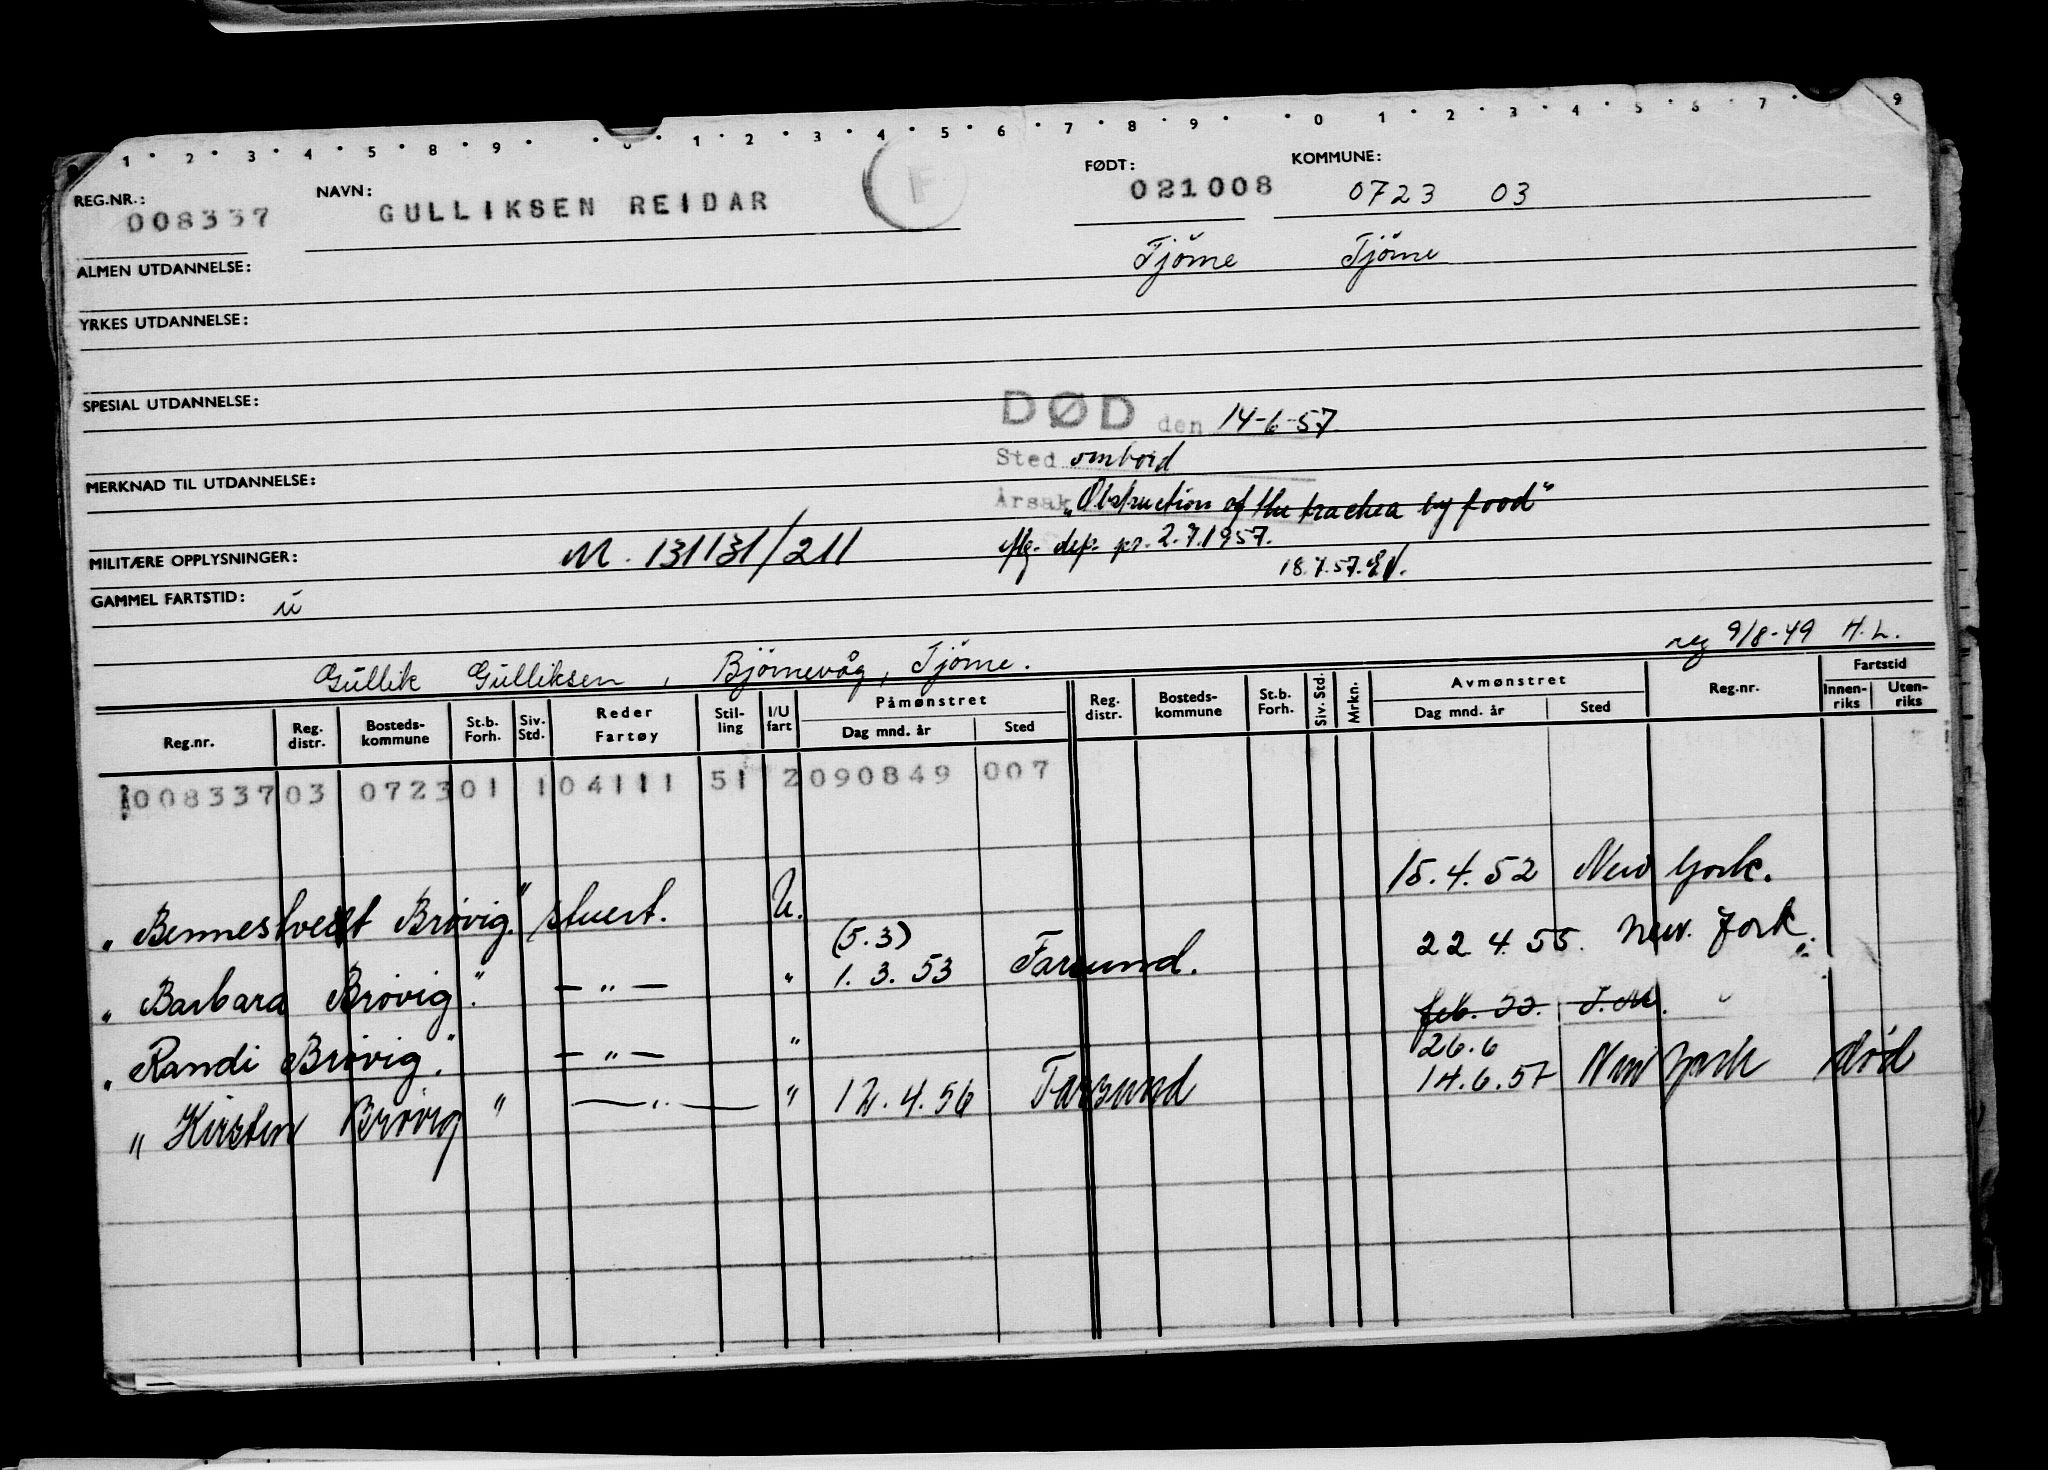 1 · 2 · 3 · 4 · 5 · 8 · 9 · · 0 · 1 · 2 · 3 · 4 · 5 · 6 · 7 · 8 · 9 · · 0 1 · 2 · 3 · 4 · 5 · 6 · 7 · 9
REG.NR.: 008337 NAVN: GULLIKSEN REIDAR F FØDT: 021008 KOMMUNE: 0723 03
ALMEN UTDANNELSE: Tjöme Tjöme
YRKES UTDANNELSE:
SPESIAL UTDANNELSE:
DØD den 14-6-57
Sted ombord
MERKNAD TIL UTDANNELSE:
Årsak „Obstruction of the trachea by food"
MILITÆRE OPPLYSNINGER: M. 13131/211 iflg. dep. pr. 2.7.1957.
18.7.57.
GAMMEL FARTSTID: u
reg 9/8-49 H.L.
Gullik Gulliksen, Bjørnevåg, Tjöme.
Reg.nr. Reg. distr. Bosteds-kommune St.b. Forh. Siv. Std. Reder Fartøy Stil-ling I/U fart Påmønstret Dag mnd. år Sted Reg. distr. Bosteds-kommune St.b. Forh. Siv. Std. Mrkn. Avmønstret Dag mnd. år Sted Reg.nr. Fartstid Innen-riks Uten-riks
008337 03 0723 01 1 04111 51 2 090849 007
„Bennestvedt Brøvig." stuert. U. 15.4.52 New York.
(5.3)
„Barbara Brøvig". — " — " 1.3.53 Farsund. 22.4.55. New. York.
feb. 55. T.M.
„Randi Brøvig". — " — "
26.6
„Kirsten Brøvig" — " — " 12.4.56 Farsund 14.6.57 New York død